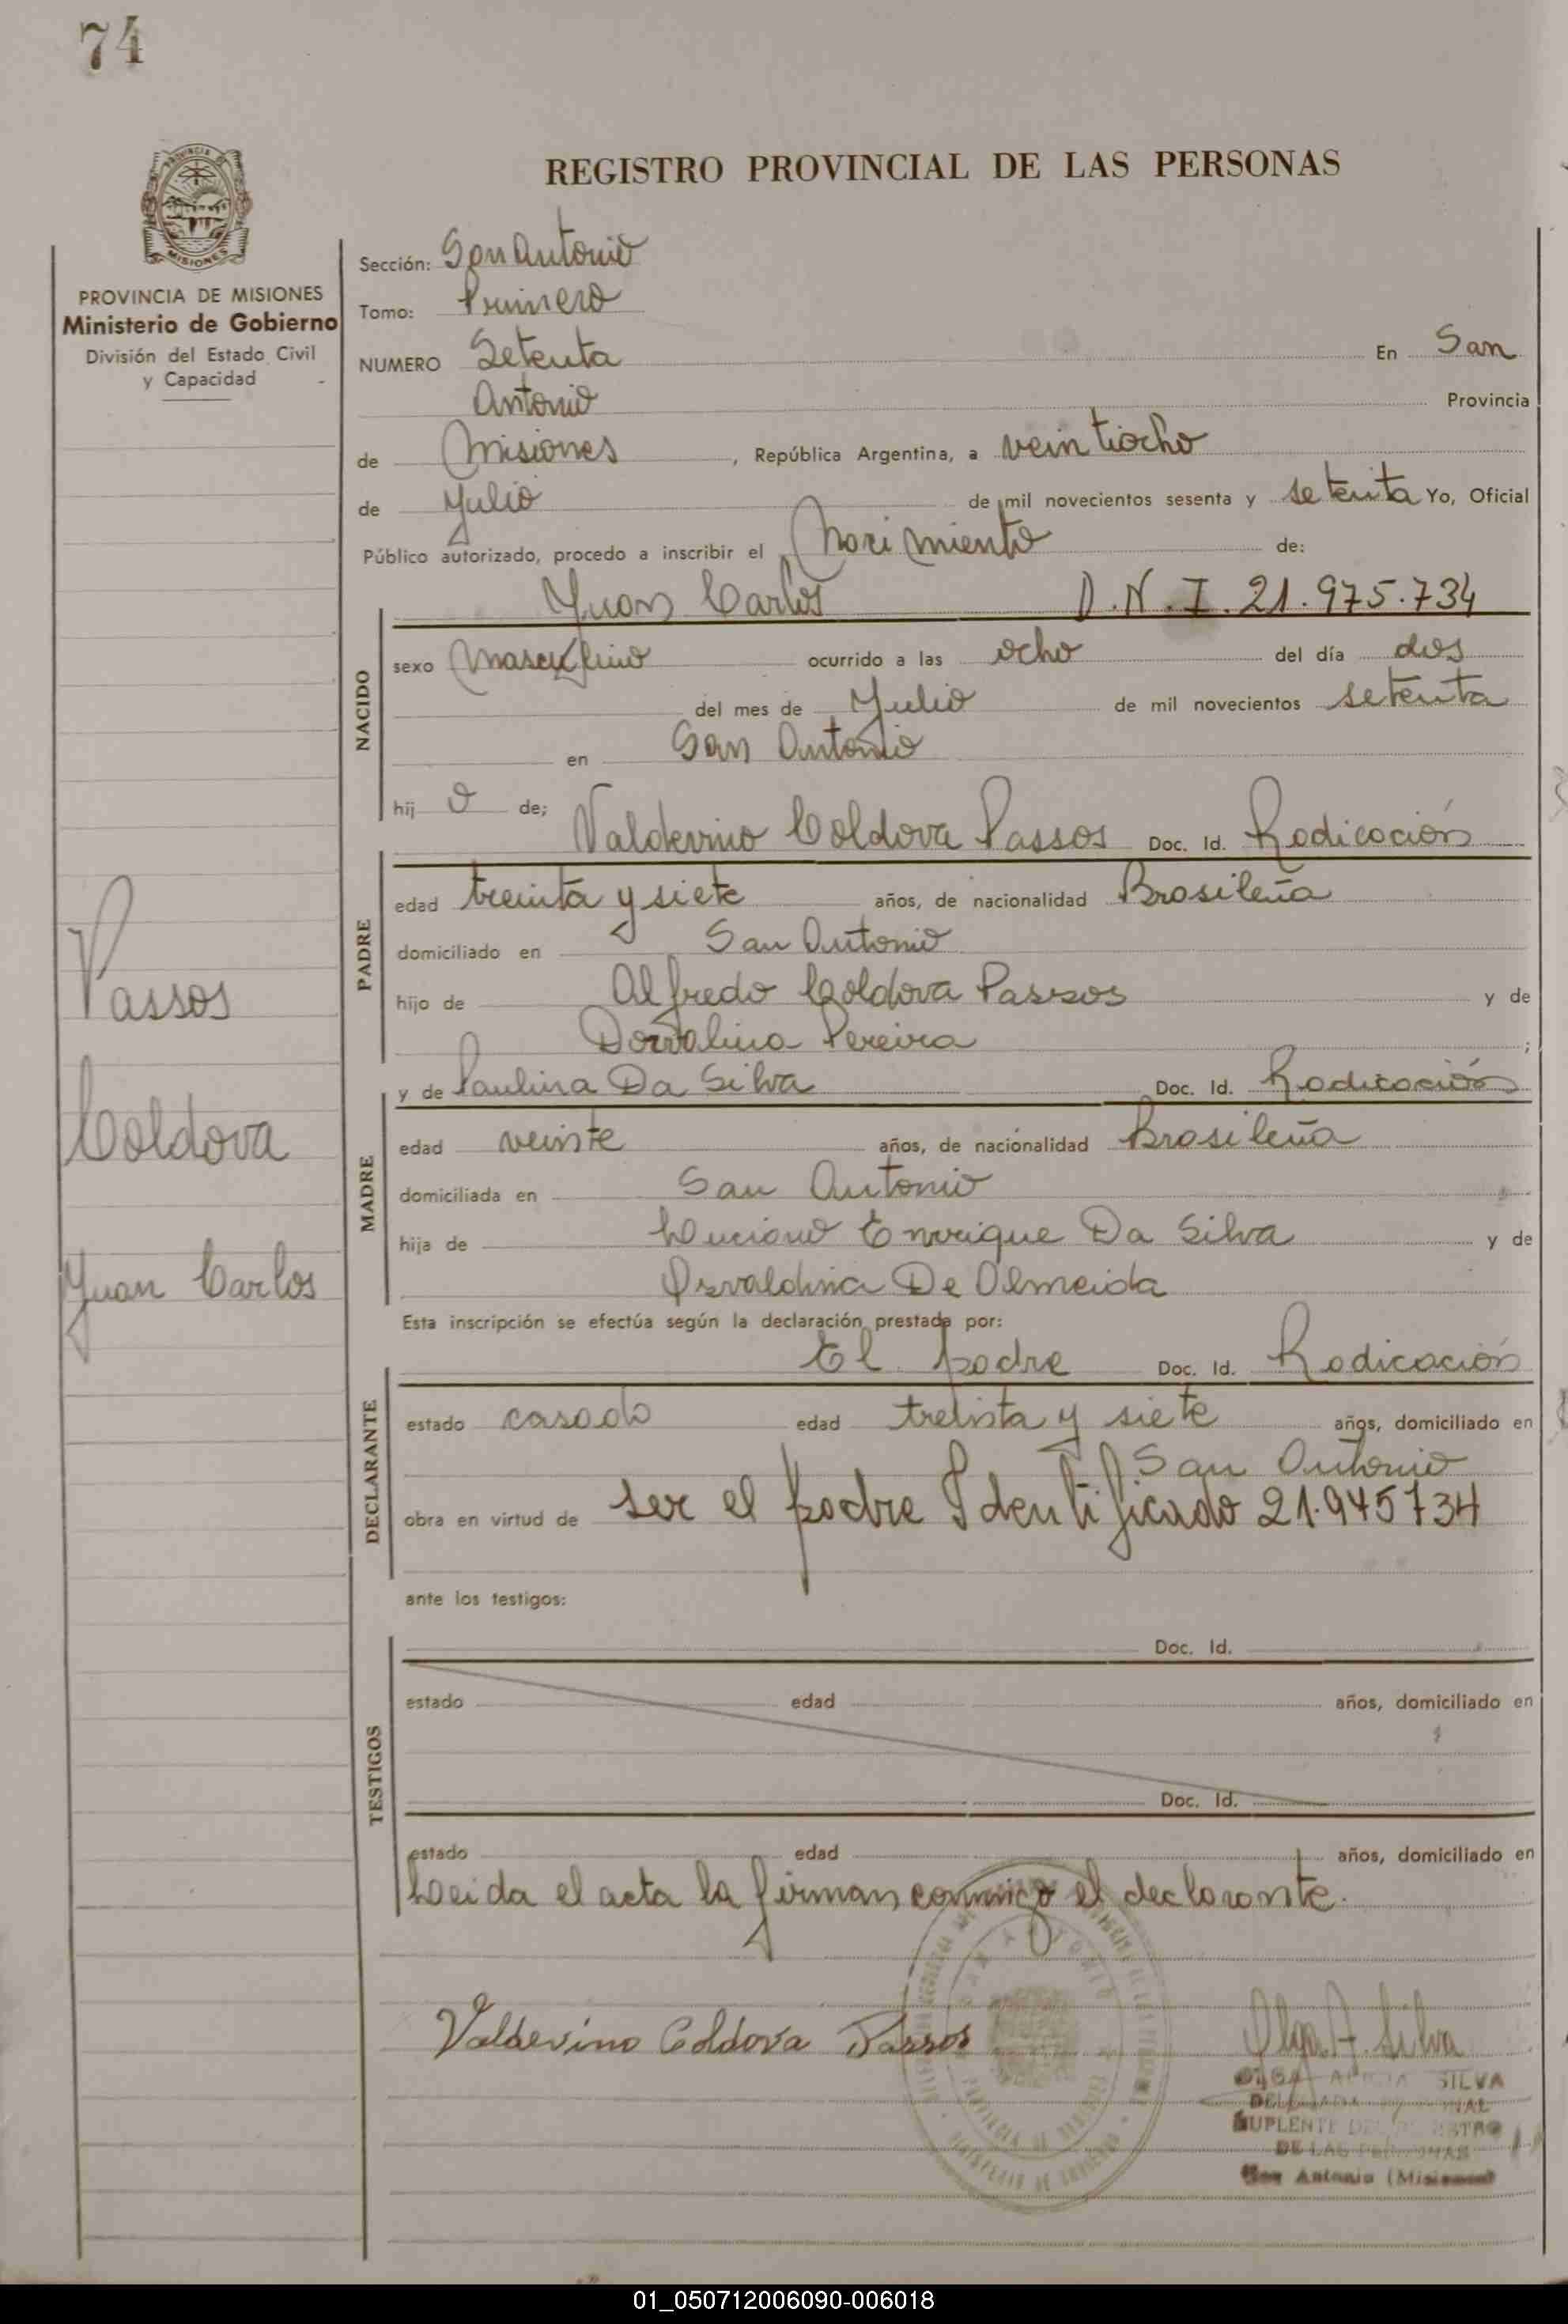 74
REGISTRO PROVINCIAL DE LAS PERSONAS
PROVINCIA DE MISIONES
Ministerio de Gobierno
División del Estado Civil
y Capacidad
Sección: San Antonio
Tomo: Primero
NUMERO Setenta En San
Antonio Provincia
de Misiones, República Argentina, a veintiocho
de Julio de mil novecientos sesenta y setenta Yo, Oficial
Público autorizado, procedo a inscribir el Nacimiento de:
Juan Carlos D.N.I. 21.975.734
NACIDO
sexo masculino ocurrido a las ocho del día dos
del mes de Julio de mil novecientos setenta
en San Antonio
hij o de; Valdevino Coldova Passos Doc. Id. Radicación
PADRE
edad treinta y siete años, de nacionalidad Brasileña
domiciliado en San Antonio
hijo de Alfredo Coldova Passos y de
Dorvalina Pereira ;
y de Paulina Da Silva Doc. Id. Radicación
MADRE
edad veinte años, de nacionalidad Brasileña
domiciliada en San Antonio
hija de Luciano Enrique Da Silva y de
Osvaldina De Olmeida
Esta inscripción se efectúa según la declaración prestada por:
El padre Doc. Id. Radicación
DECLARANTE
estado casado edad treinta y siete años, domiciliado en
San Antonio
obra en virtud de ser el padre Identificado 21.945734
ante los testigos:
TESTIGOS
Doc. Id.
estado edad años, domiciliado en
Doc. Id.
estado edad años, domiciliado en
Leida el acta la firman conmigo el declarante.
Valdevino Coldova Passos
Olga A. Silva
SILVA
SUPLENTE
DE LAS PERSONAS
San Antonio (Misiones)
Passos
Coldova
Juan Carlos
01_050712006090-006018